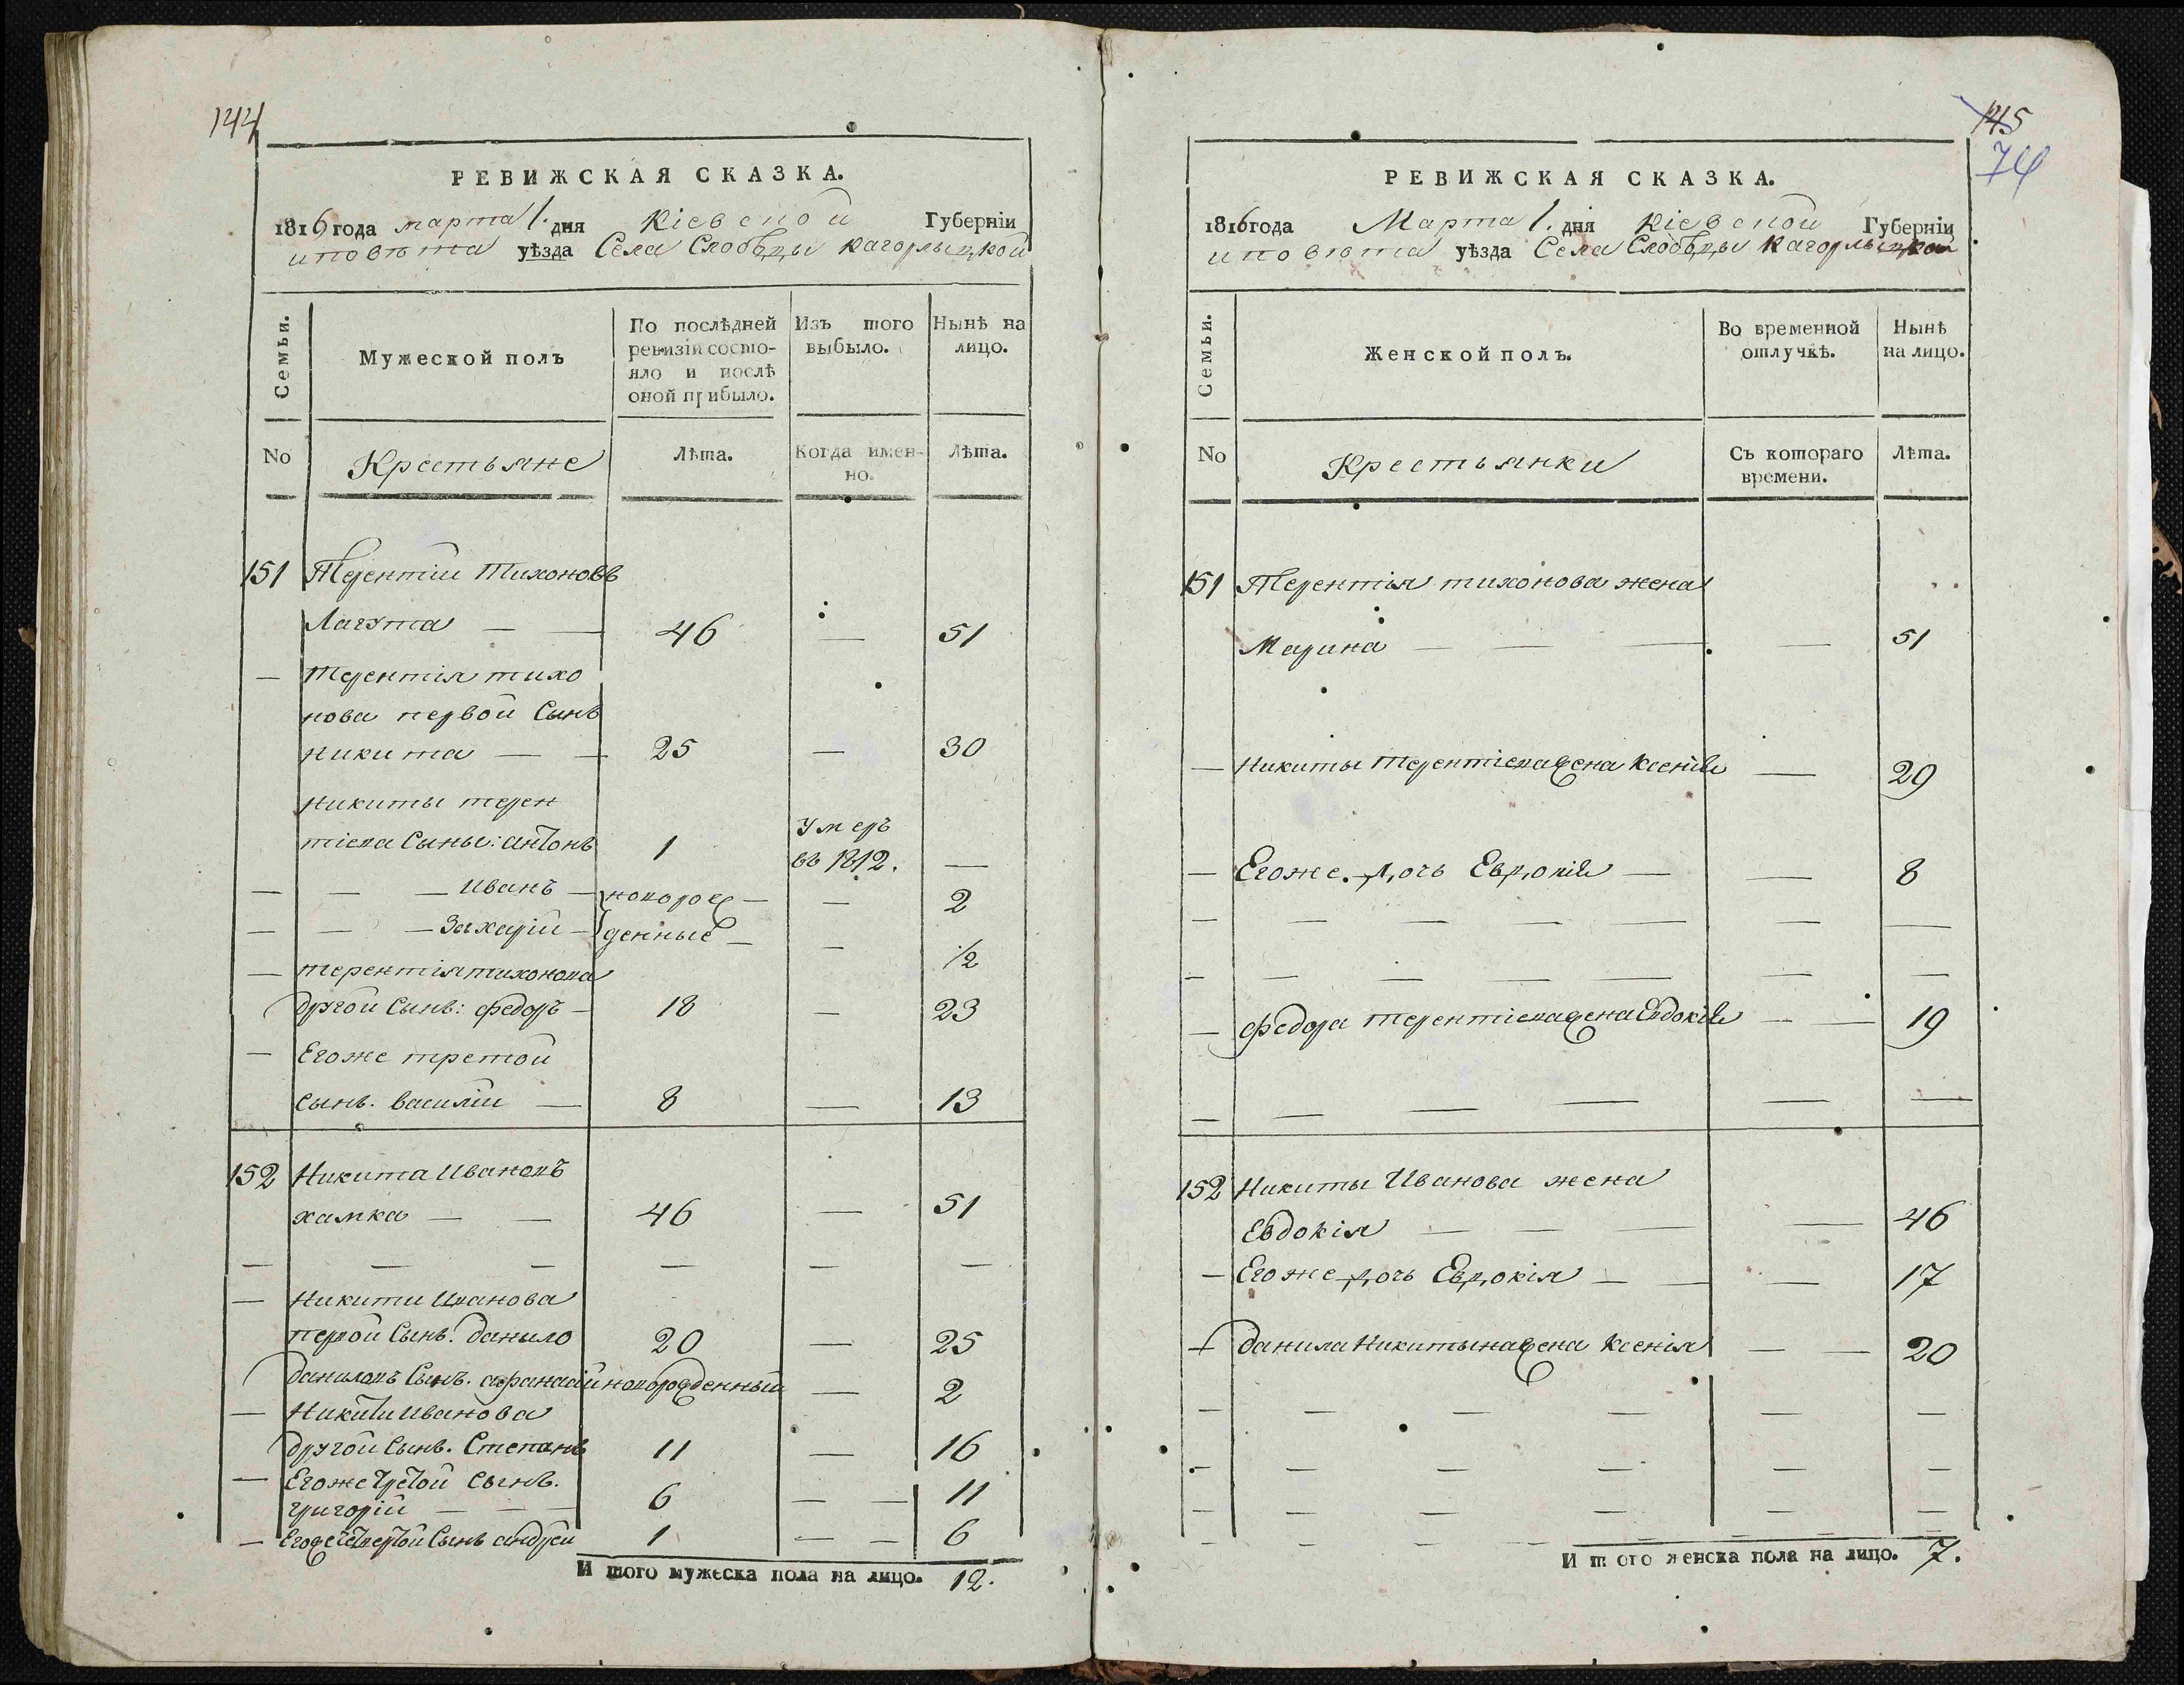 144
РЕВИЖСКАЯ СКАЗКА.
1816 года марта 1. дня Кіевской Губерніи
и повѣта уѣзда Села Слободы Кагорлыцкой
Семьи.
Мужеской полъ
По послѣдней ревизіи состояло и послѣ оной прибыло.
Изъ того выбыло.
Нынѣ на лицо.
No
Крестьяне
Лѣта.
Когда именно.
Лѣта.
151 Терентій Тихоновъ
Лагута — — 46 — 51
— Терентія тихо
нова первой Сынъ
Никита — — 25 — 30
Никиты терен
тіева Сыны: антонъ 1 умеръ въ 1812. —
— — — Иванъ — новорож — — 2
— — — Захарій — денные — — 1/2
— терентія тихонова
другой Сынъ: федоръ — 18 — 23
— Егоже третой
сынъ. василій — 8 — 13
152 Никита Ивановъ
хамка — — 46 — 51
— — — — — —
— Никити Иванова
первой Сынъ: данило 20 — 25
даниловъ Сынъ. афанасій новорожденный — 2
— Никити Иванова
другой Сынъ. Степанъ 11 — 16
— Егоже третой Сынъ.
григорій — — — 6 — — 11
— Егоже четвертой Сынъ андрей 1 — — 6
И того мужеска пола на лицо. 12.
145
74
РЕВИЖСКАЯ СКАЗКА.
1816 года Марта 1. дня Кіевской Губерніи
и повѣта уѣзда Села Слободы Кагорлыцкой
Семьи.
Женской полъ.
Во временной отлучкѣ.
Нынѣ на лицо.
No
Крестьянки
Съ котораго времени.
Лѣта.
151 Терентія тихонова жена
Марина — — — — 51
— Никиты Терентіева жена Ксенія — 29
— Егоже. дочь Евдокія — — 8
— — — — — — —
— — — — — — —
— федора терентіева жена Евдокія — — 19
— — — — — —
152 Никиты Иванова жена
Евдокія — — — — 46
— Егоже дочь Евдокія — — — 17
— данила Никитына жена Ксенія — — 20
— — — — — —
— — — — — —
— — — — — —
— — — — — — — —
И того женска пола на лицо. 7.